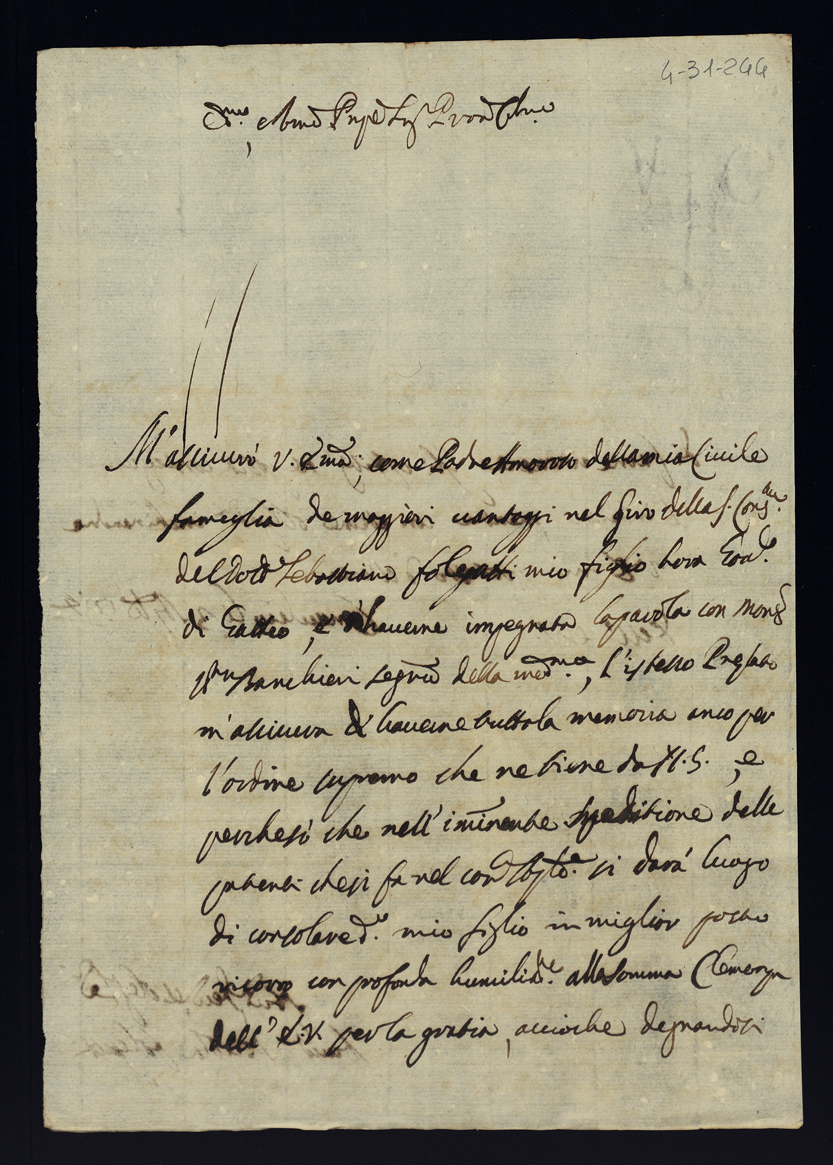 4-31-244
Em.mo e Rmo Prnpe Sig.r Pron Clmo
M'assicurò V. Emza, come Padre Amoroso della mia Civile
fameglia de maggiori vantaggi nel giro della S. Cons.ta
del Dott.r Sebastiano folegatti mio figlio hora Gov.re
di Gatteo, e d'haverne impegnata la parola con Mons.r
Banchieri Segrio della med.ma, l'istesso Prelato
m'assicura d'haverne tutta la memoria anco per
l'ordine supremo che ne tiene da N.S., e
perche sò che nell'iminente speditione delle
patenti che si fa nel cor.te Agto. si darà luogo
di consolare d.o mio figlio in miglior posto
ricorro con profonda humiltà alla somma Clemenza
dell'E.V. per la gratia, accioche degnandosi